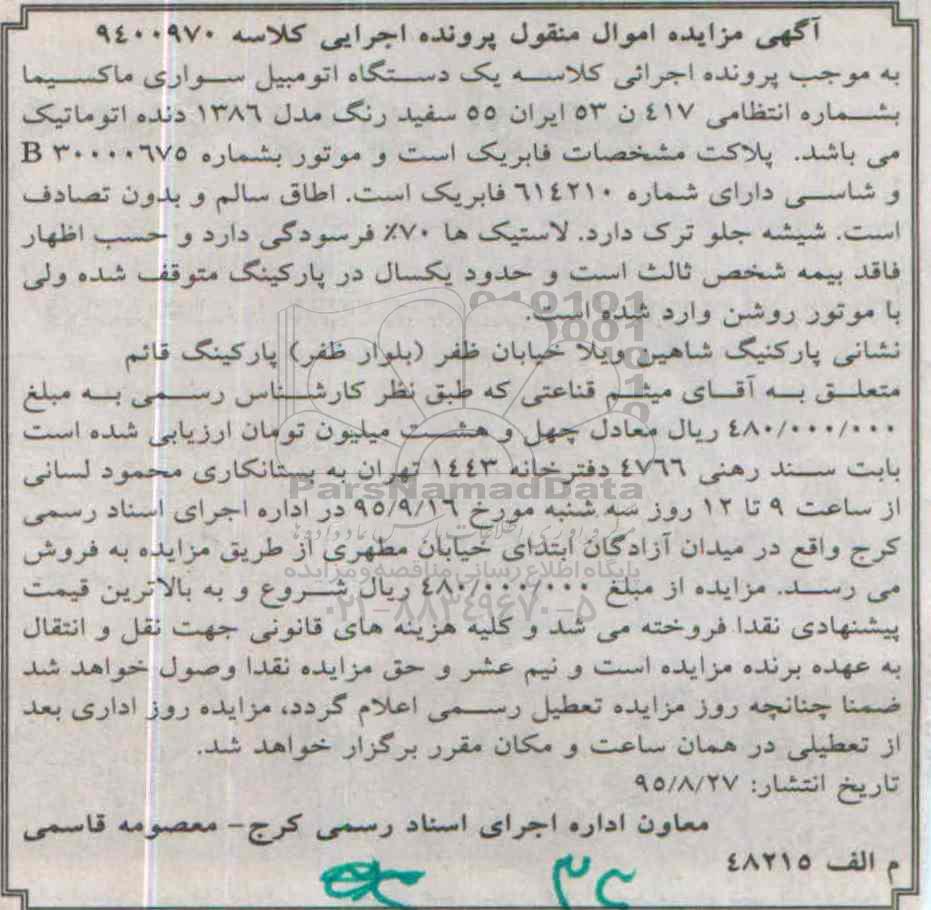 آگهی مزایده اموال منقول پرونده اجرایی کلاسه ۹۴۰۰۹۷۰
به موجب پرونده اجرائی کلاسه یک دستگاه اتومبیل سواری ماکسیما
بشماره انتظامی ٤١٧ ن ٥٣ ایران ٥٥ سفید رنگ مدل ١٣٨٦ دنده اتوماتیک
می باشد. پلاکت مشخصات فابریک است و موتور بشماره B ٣٠٠٠٠٦٧٥
و شاسی دارای شماره ٦١٤٢١٠ فابریک است. اطاق سالم و بدون تصادف
است. شیشه جلو ترک دارد. لاستیک ها ٧٠٪ فرسودگی دارد و حسب اظهار
فاقد بیمه شخص ثالث است و حدود یکسال در پارکینگ متوقف شده ولی
با موتور روشن وارد شده است.
نشانی پارکنیگ شاهین ویلا خیابان ظفر (بلوار ظفر) پارکینگ قائم
متعلق به آقای میثم قناعتی که طبق نظر کارشناس رسمی به مبلغ
٤٨٠/٠٠٠/٠٠٠ ریال معادل چهل و هشت میلیون تومان ارزیابی شده است
بابت سند رهنی ٤٧٦٦ دفترخانه ١٤٤٣ تهران به بستانکاری محمود لسانی
از ساعت ٩ تا ١٢ روز سه شنبه مورخ ٩٥/٩/١٦ در اداره اجرای اسناد رسمی
کرج واقع در میدان آزادگان ابتدای خیابان مطهری از طریق مزایده به فروش
می رسد. مزایده از مبلغ ٤٨٠/٠٠٠/٠٠٠ ریال شروع و به بالاترین قیمت
پیشنهادی نقدا فروخته می شد و کلیه هزینه های قانونی جهت نقل و انتقال
به عهده برنده مزایده است و نیم عشر و حق مزایده نقدا وصول خواهد شد
ضمنا چنانچه روز مزایده تعطیل رسمی اعلام گردد، مزایده روز اداری بعد
از تعطیلی در همان ساعت و مکان مقرر برگزار خواهد شد.
تاریخ انتشار: ٩٥/٨/٢٧
معاون اداره اجرای اسناد رسمی کرج- معصومه قاسمی
م الف ٤٨٢١٥
ParsNamadData
پایگاه اطلاع رسانی مناقصه و مزایده
۰۲۱-۸۸۳۴۹۶۷۰-۵